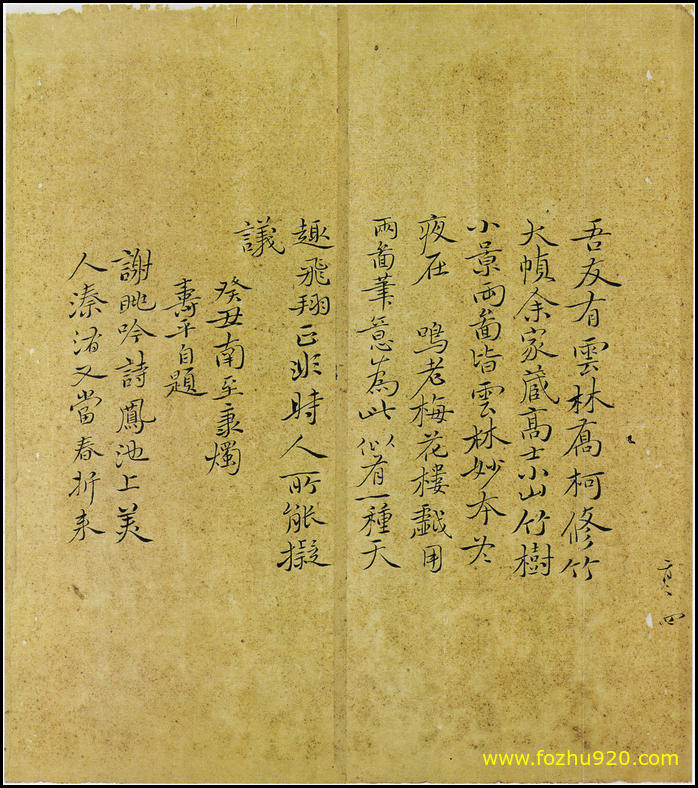 亨 四
吾友有雲林喬柯修竹
大幀余家蔵高士小山竹樹
小景两啚皆雲林妙本冬
夜在 鳴老梅花樓戯用
两啚筆意為此似有一種天
趣飛翔正非時人所能擬
議
癸丑南至秉燭
壽平自題
謝眺吟詩鳳池上美
人溱洧又當春折来
www.fozhu920.com